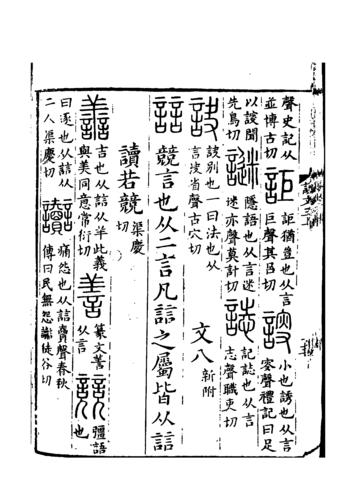 聲史記从並博古切 詎 詎猶豈也从言巨聲其呂切 謏 小也誘也从言叜聲禮記曰足
以謏聞先鳥切 謎 隱語也从言迷迷亦聲莫計切 誌 記誌也从言志聲職吏切
訣 訣別也一曰法也从言決省聲古穴切 文八新附
誩 競言也从二言凡誩之屬皆从誩
讀若競渠慶切
譱 吉也从誩从羊此義與美同意常衍切 善 篆文譱从言 競 彊語也
曰逐也从誩从二人渠慶切 讟 痛怨也从誩𧶠聲春秋傳曰民無怨讟徒谷切